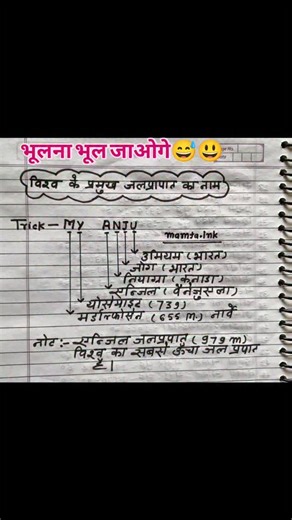 भूलना भूल जाओगे😅😃
विश्व के प्रमुख जलप्रपात का नाम
Trick - MY ANJU
mamta.ink
उमियम (भारत)
जोग (भारत)
नियाग्रा (कनाडा)
एन्जिल (वेनेजुएला)
योसेमाइट (739)
मर्डाल्फोसेन (655 m.) नार्वे
नोट :- एन्जिल जलप्रपात (979 m)
विश्व का सबसे ऊँचा जल प्रपात
है।